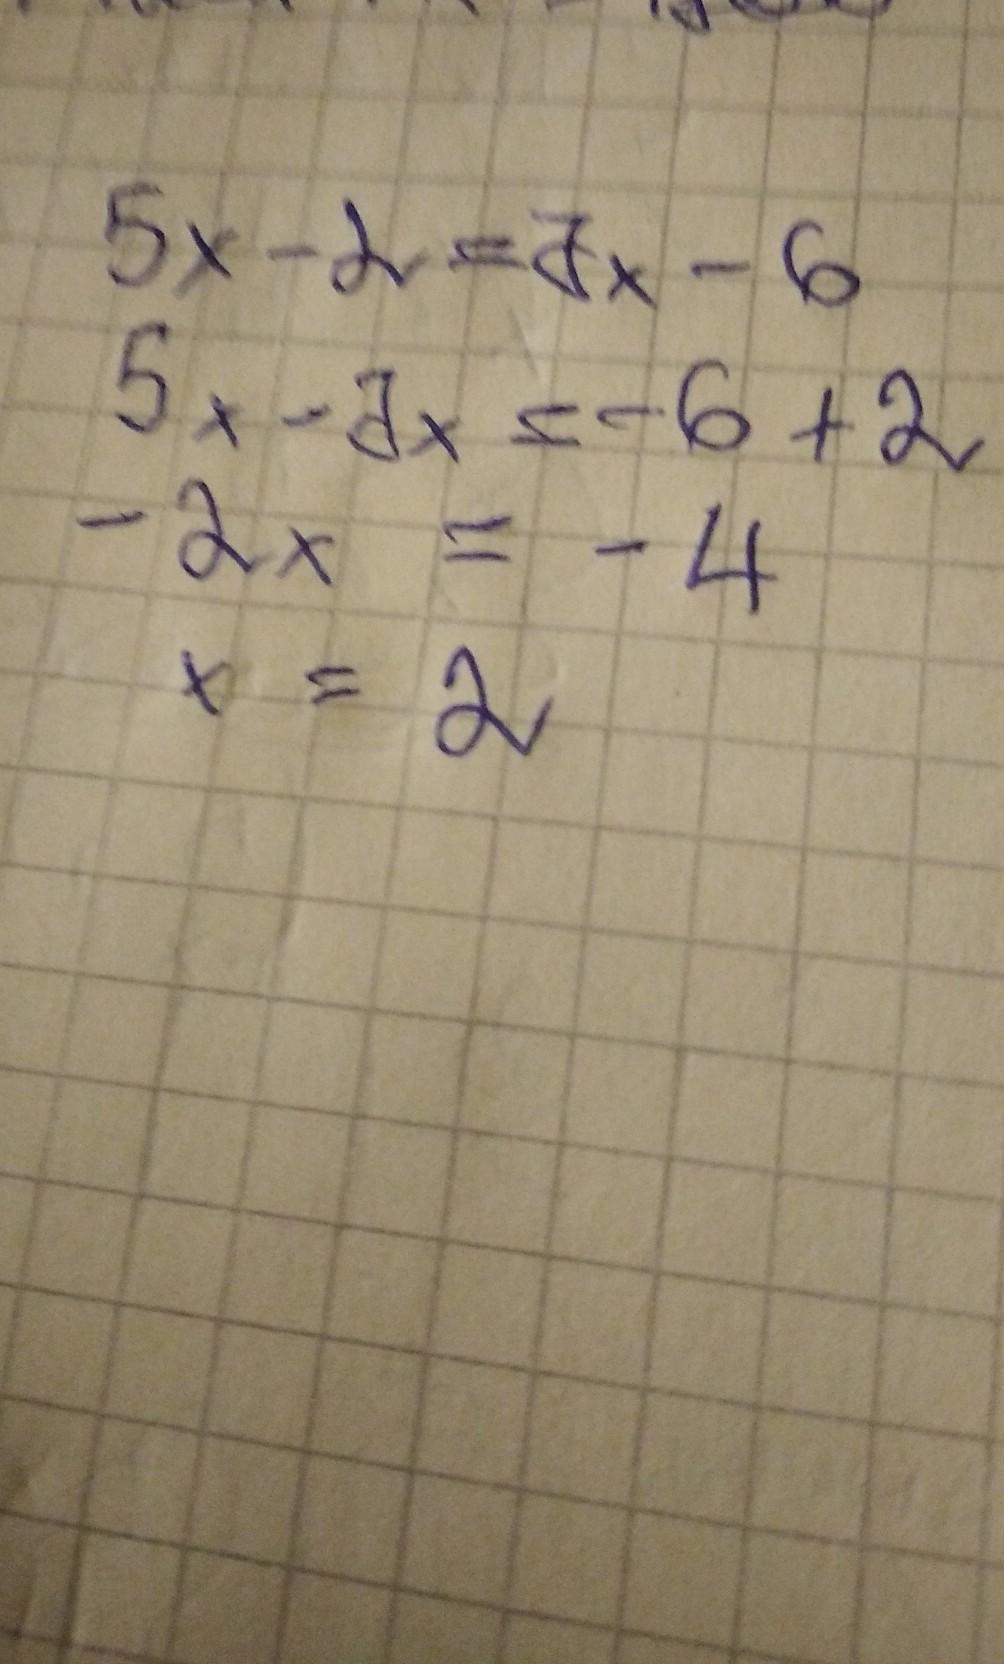 5x - 2 = 7x - 6
5x - 7x = -6 + 2
-2x = -4
x = 2